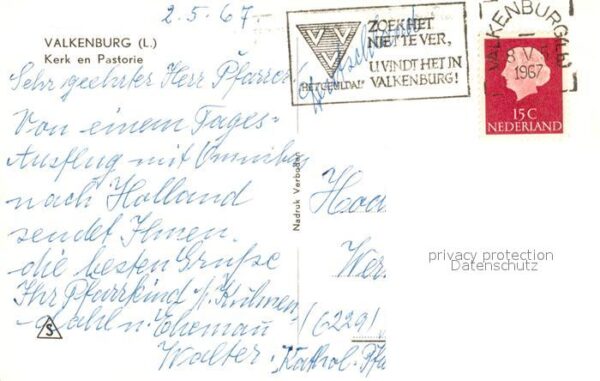 2.5.67.
VALKENBURG (L.)
Kerk en Pastorie
ZOEK HET
NIET TE VER,
U VINDT HET IN
VALKENBURG!
"HET GEULDAL"
VALKENBURG (L.)
1967
15 C
NEDERLAND
Sehr geehrter Herr Pfarrer!
Von einem Tages-
Ausflug mit Omnibus
nach Holland
sendet Ihnen
die besten Grüße
Ihr Pfarrkind
u. Ehemann
Walter.
Nadruk Verboden
Hoc
Wer
(6229)
Kathol. Pfa
privacy protection
Datenschutz
S